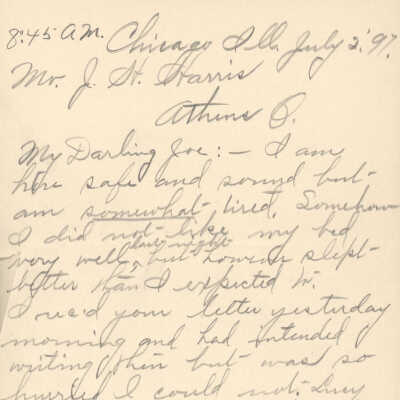 8:45 A.M. Chicago Ill. July 2, '97.
Mr. J. H. Harris
Athens O.
My Darling Joe:- I am
here safe and sound but
am somewhat tired. Somehow
I did not like my bed
last night
very well, but however slept
better than I expected to.
I rec'd your letter yesterday
morning and had intended
writing then but was so
hurried I could not. Lucy